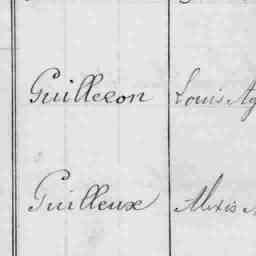 Guilleron Louis Ag
Guilleux Alexis